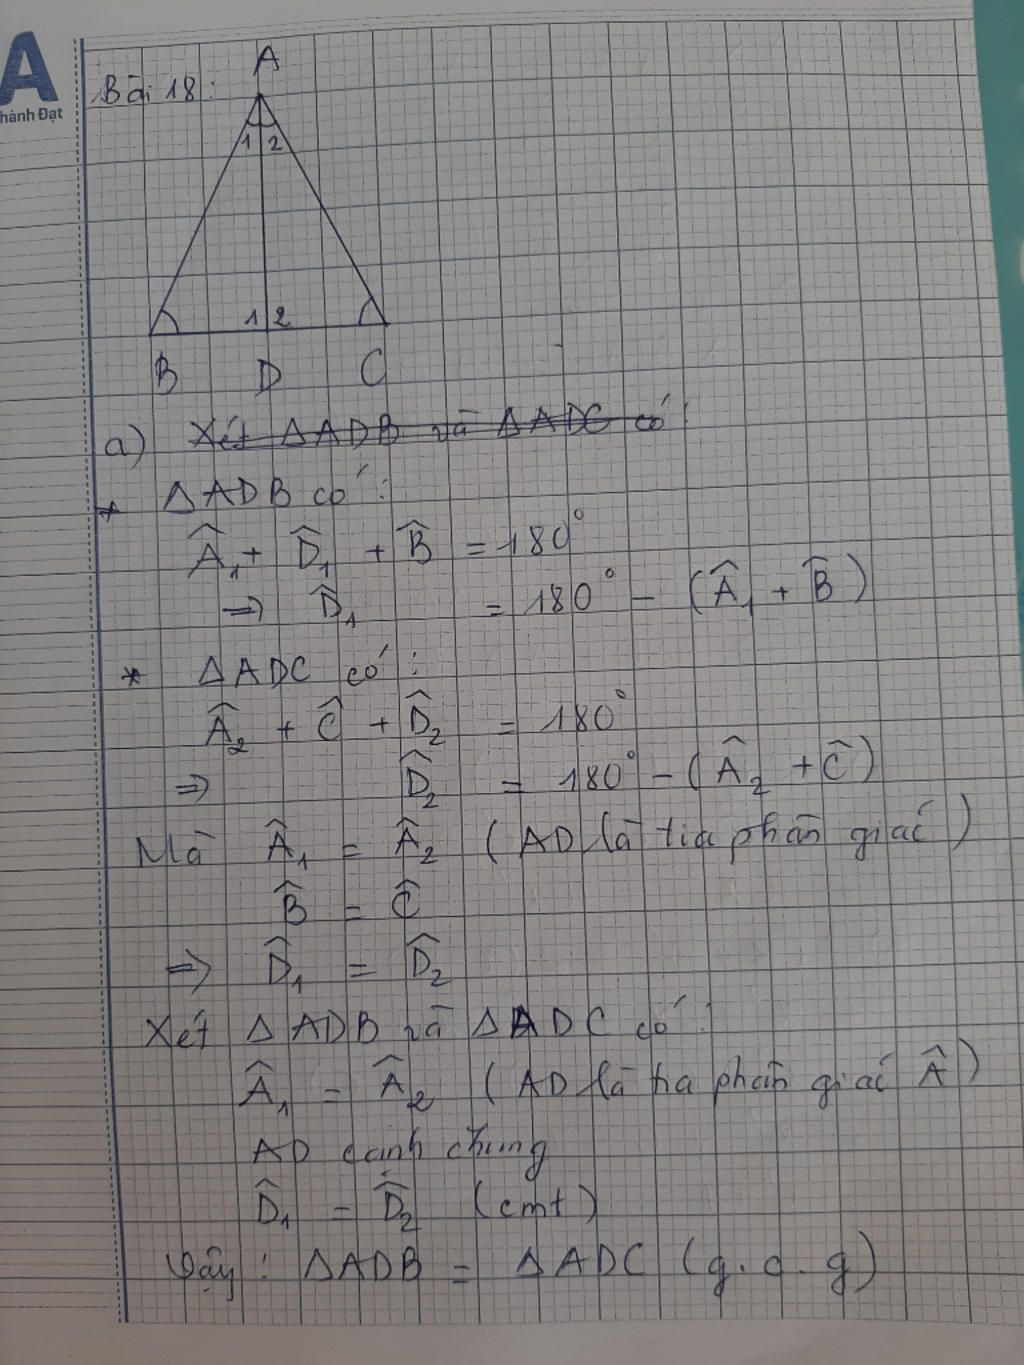 A
hành Đạt
Bài 18:
A
1 2
1 2
B D C
a) Xét ΔADB và ΔADC có:
* ΔADB có:
Â₁ + D̂₁ + B̂ = 180°
=> D̂₁ = 180° - (Â₁ + B̂)
* ΔADC có:
Â₂ + Ĉ + D̂₂ = 180°
=> D̂₂ = 180° - (Â₂ + Ĉ)
Mà Â₁ = Â₂ (AD là tia phân giác)
B̂ = Ĉ
=> D̂₁ = D̂₂
Xét ΔADB và ΔADC có:
Â₁ = Â₂ (AD là tia phân giác Â)
AD cạnh chung
D̂₁ = D̂₂ (cmt)
Vậy: ΔADB = ΔADC (g.c.g)